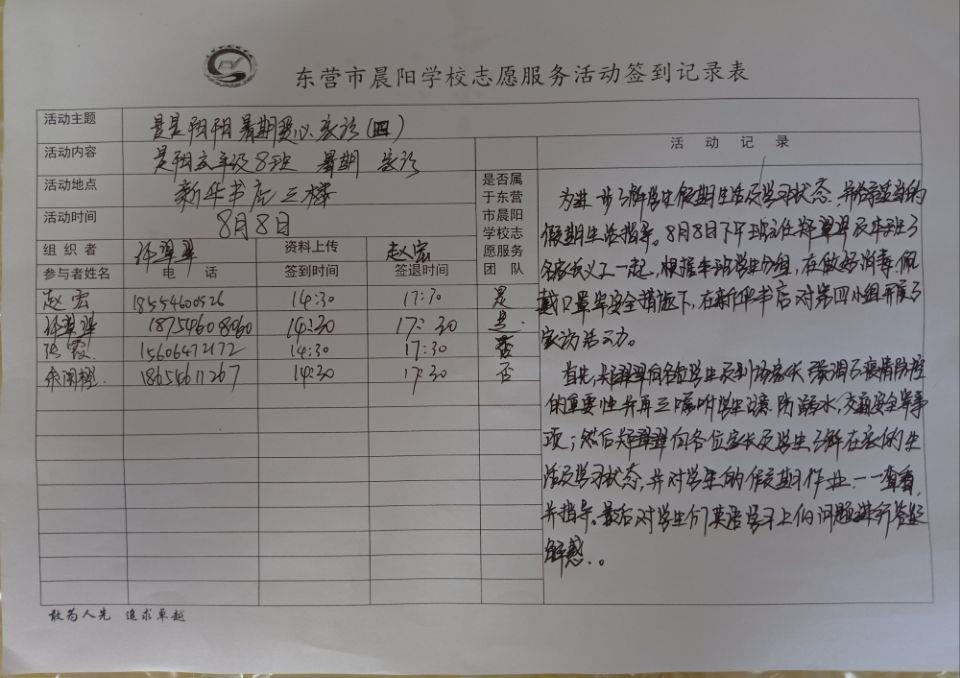 东营市晨阳学校志愿服务活动签到记录表
活动主题 晨阳暑期爱心家访(四)
活动内容 晨阳五年级8班 暑期 家访
活动地点 新华书店三楼
活动时间 8月8日
组织者 翠翠 资料上传 赵宏
参与者姓名 电话 签到时间 签退时间 是否属于东营市晨阳学校志愿服务团队
赵宏 18554600526 14:30 17:30 是
翠翠 18754608060 14:30 17:30 是
张霞 15606472172 14:30 17:30 否
18654611267 14:30 17:30 否
活动记录
为进一步了解学生假期生活及学习状态,并给予适当的
假期生活指导。8月8日下午班主任郑翠翠及本班
名家长义工一起,根据本班学生分组,在做好消毒、佩
戴口罩等安全措施下,在新华书店对第四小组开展了
家访活动。
首先,郑翠翠向各位学生及到场家长强调了疫情防控
的重要性并再三嘱咐学生注意防溺水,交通安全等事
项;然后郑翠翠向各位家长及学生了解在家的生
活及学习状态,并对学生的假期作业一一查看,
并指导。最后对学生们英语学习上的问题进行答疑
解惑。
敢为人先 追求卓越